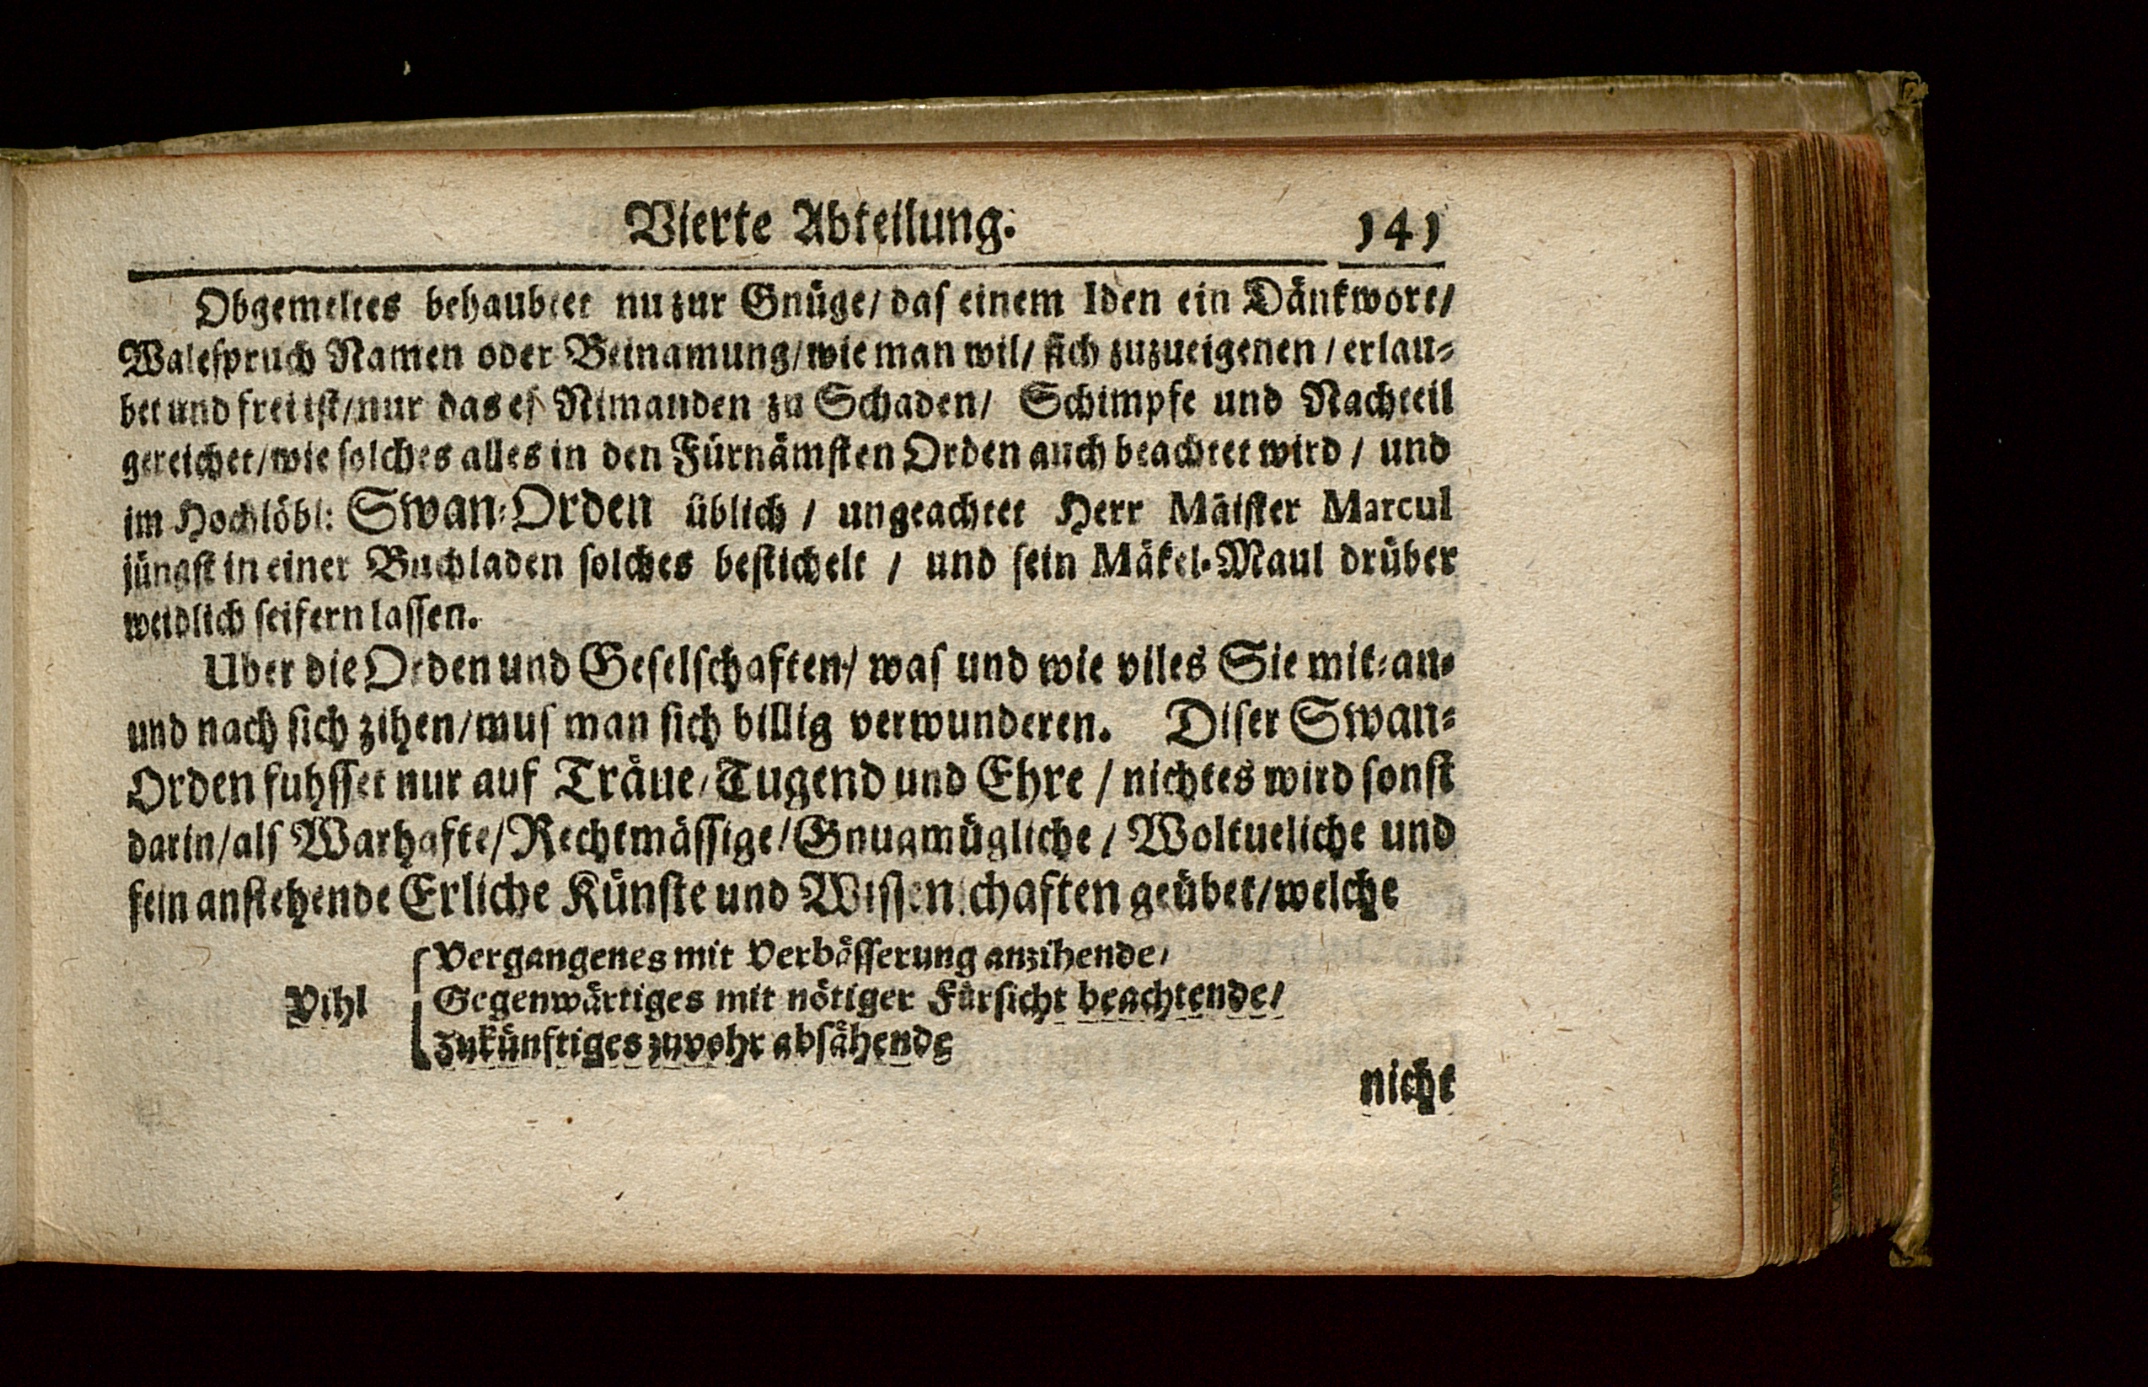 Vierte Abteilung. 141
Obgemeltes behaubtet nu zur Gnüge/ das einem Iden ein Dänkwort/
Walespruch Namen oder Beinamung/ wie man wil/ sich zuzueigenen / erlau-
bet und frei ist/ nur das es Nimanden zu Schaden/ Schimpfe und Nachteil
gereichet/ wie solches alles in den Fürnämsten Orden auch beachtet wird / und
im Hochlöbl: Swan-Orden üblich / ungeachtet Herr Mäister Marcul
jüngst in einer Buchladen solches bestichelt / und sein Mäkel-Maul drüber
weidlich seifern lassen.
Uber die Orden und Geselschaften/ was und wie viles Sie mit-an-
und nach sich zihen/ mus man sich billig verwunderen. Diser Swan-
Orden fuhsset nur auf Träue/ Tugend und Ehre / nichtes wird sonst
darin/ als Warhafte/ Rechtmässige/ Gnugmügliche / Woltueliche und
fein anstehende Erliche Künste und Wissenschaften geübet/ welche
Vergangenes mit Verbässerung anzihende/
Vihl Gegenwärtiges mit nötiger Fürsicht beachtende/
Zukünftiges zuvohr absähende
nicht